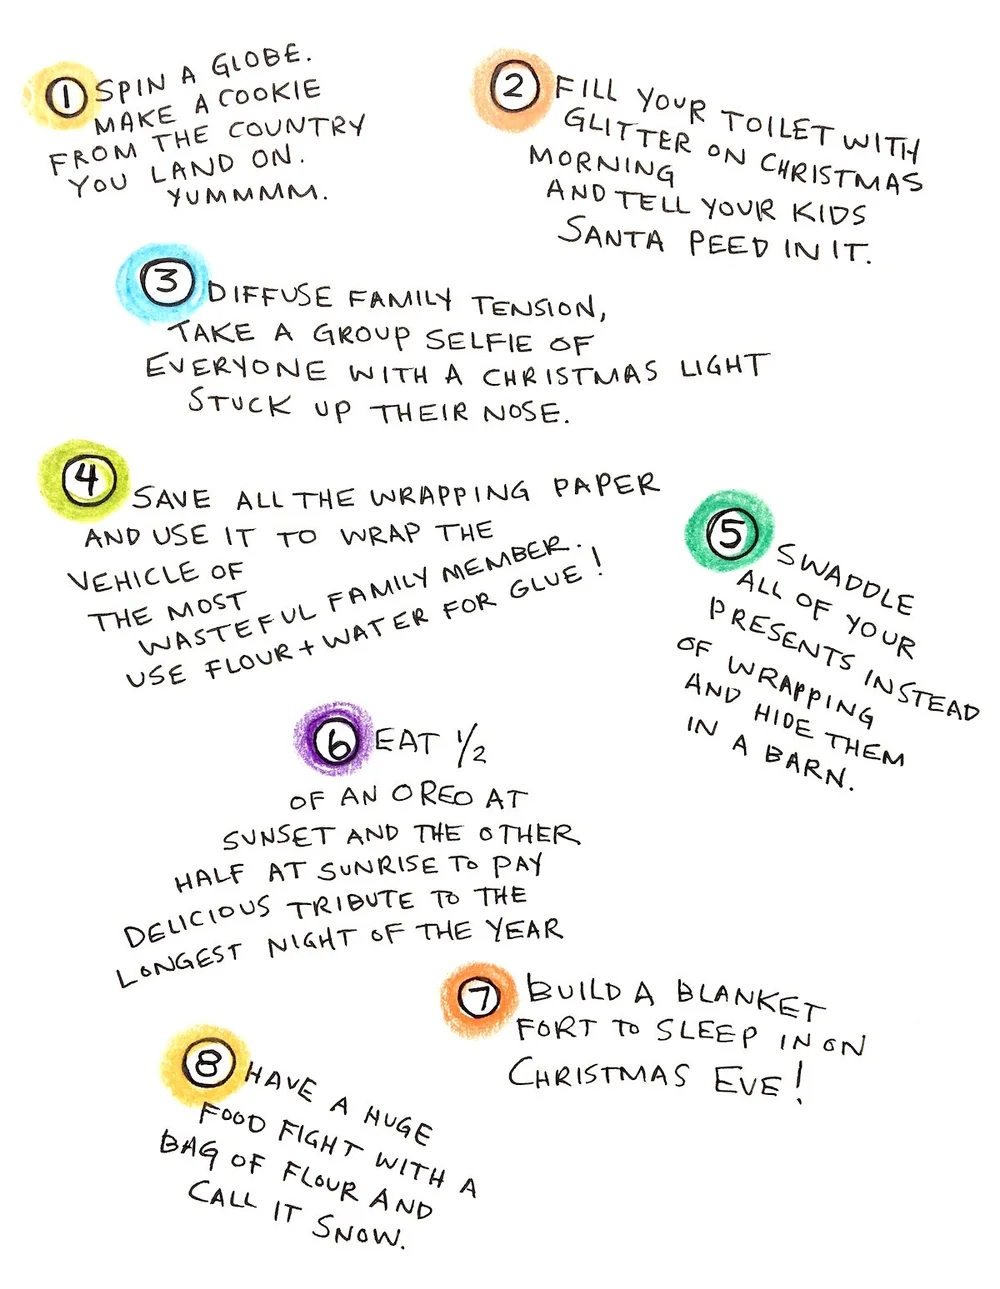 1 SPIN A GLOBE.
MAKE A COOKIE
FROM THE COUNTRY
YOU LAND ON.
YUMMMM.
2 FILL YOUR TOILET WITH
GLITTER ON CHRISTMAS
MORNING
AND TELL YOUR KIDS
SANTA PEED IN IT.
3 DIFFUSE FAMILY TENSION,
TAKE A GROUP SELFIE OF
EVERYONE WITH A CHRISTMAS LIGHT
STUCK UP THEIR NOSE.
4 SAVE ALL THE WRAPPING PAPER
AND USE IT TO WRAP THE
VEHICLE OF
THE MOST
WASTEFUL FAMILY MEMBER.
USE FLOUR + WATER FOR GLUE!
5 SWADDLE
ALL OF YOUR
PRESENTS INSTEAD
OF WRAPPING
AND HIDE THEM
IN A BARN.
6 EAT 1/2
OF AN OREO AT
SUNSET AND THE OTHER
HALF AT SUNRISE TO PAY
DELICIOUS TRIBUTE TO THE
LONGEST NIGHT OF THE YEAR
7 BUILD A BLANKET
FORT TO SLEEP IN ON
CHRISTMAS EVE!
8 HAVE A HUGE
FOOD FIGHT WITH A
BAG OF FLOUR AND
CALL IT SNOW.